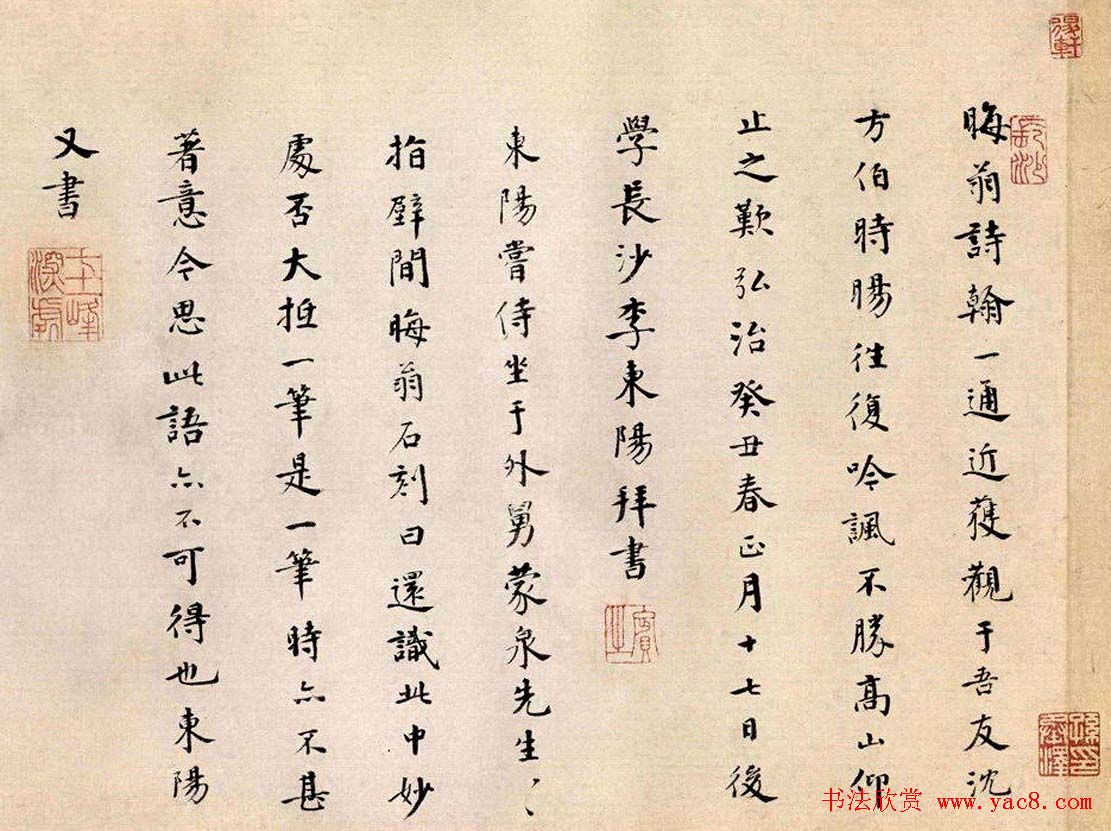 晦翁詩翰一通近獲觀于吾友沈
方伯時暘徃復吟諷不勝高山仰
止之歎弘治癸丑春正月十七日後
學長沙李東陽拜書
東陽嘗侍坐于外舅蒙泉先生〻
指壁間晦翁石刻曰還識此中妙
處否大抵一筆是一筆時亦不甚
著意今思此語亦不可得也東陽
又書
賓之
书法欣赏 www.yac8.com